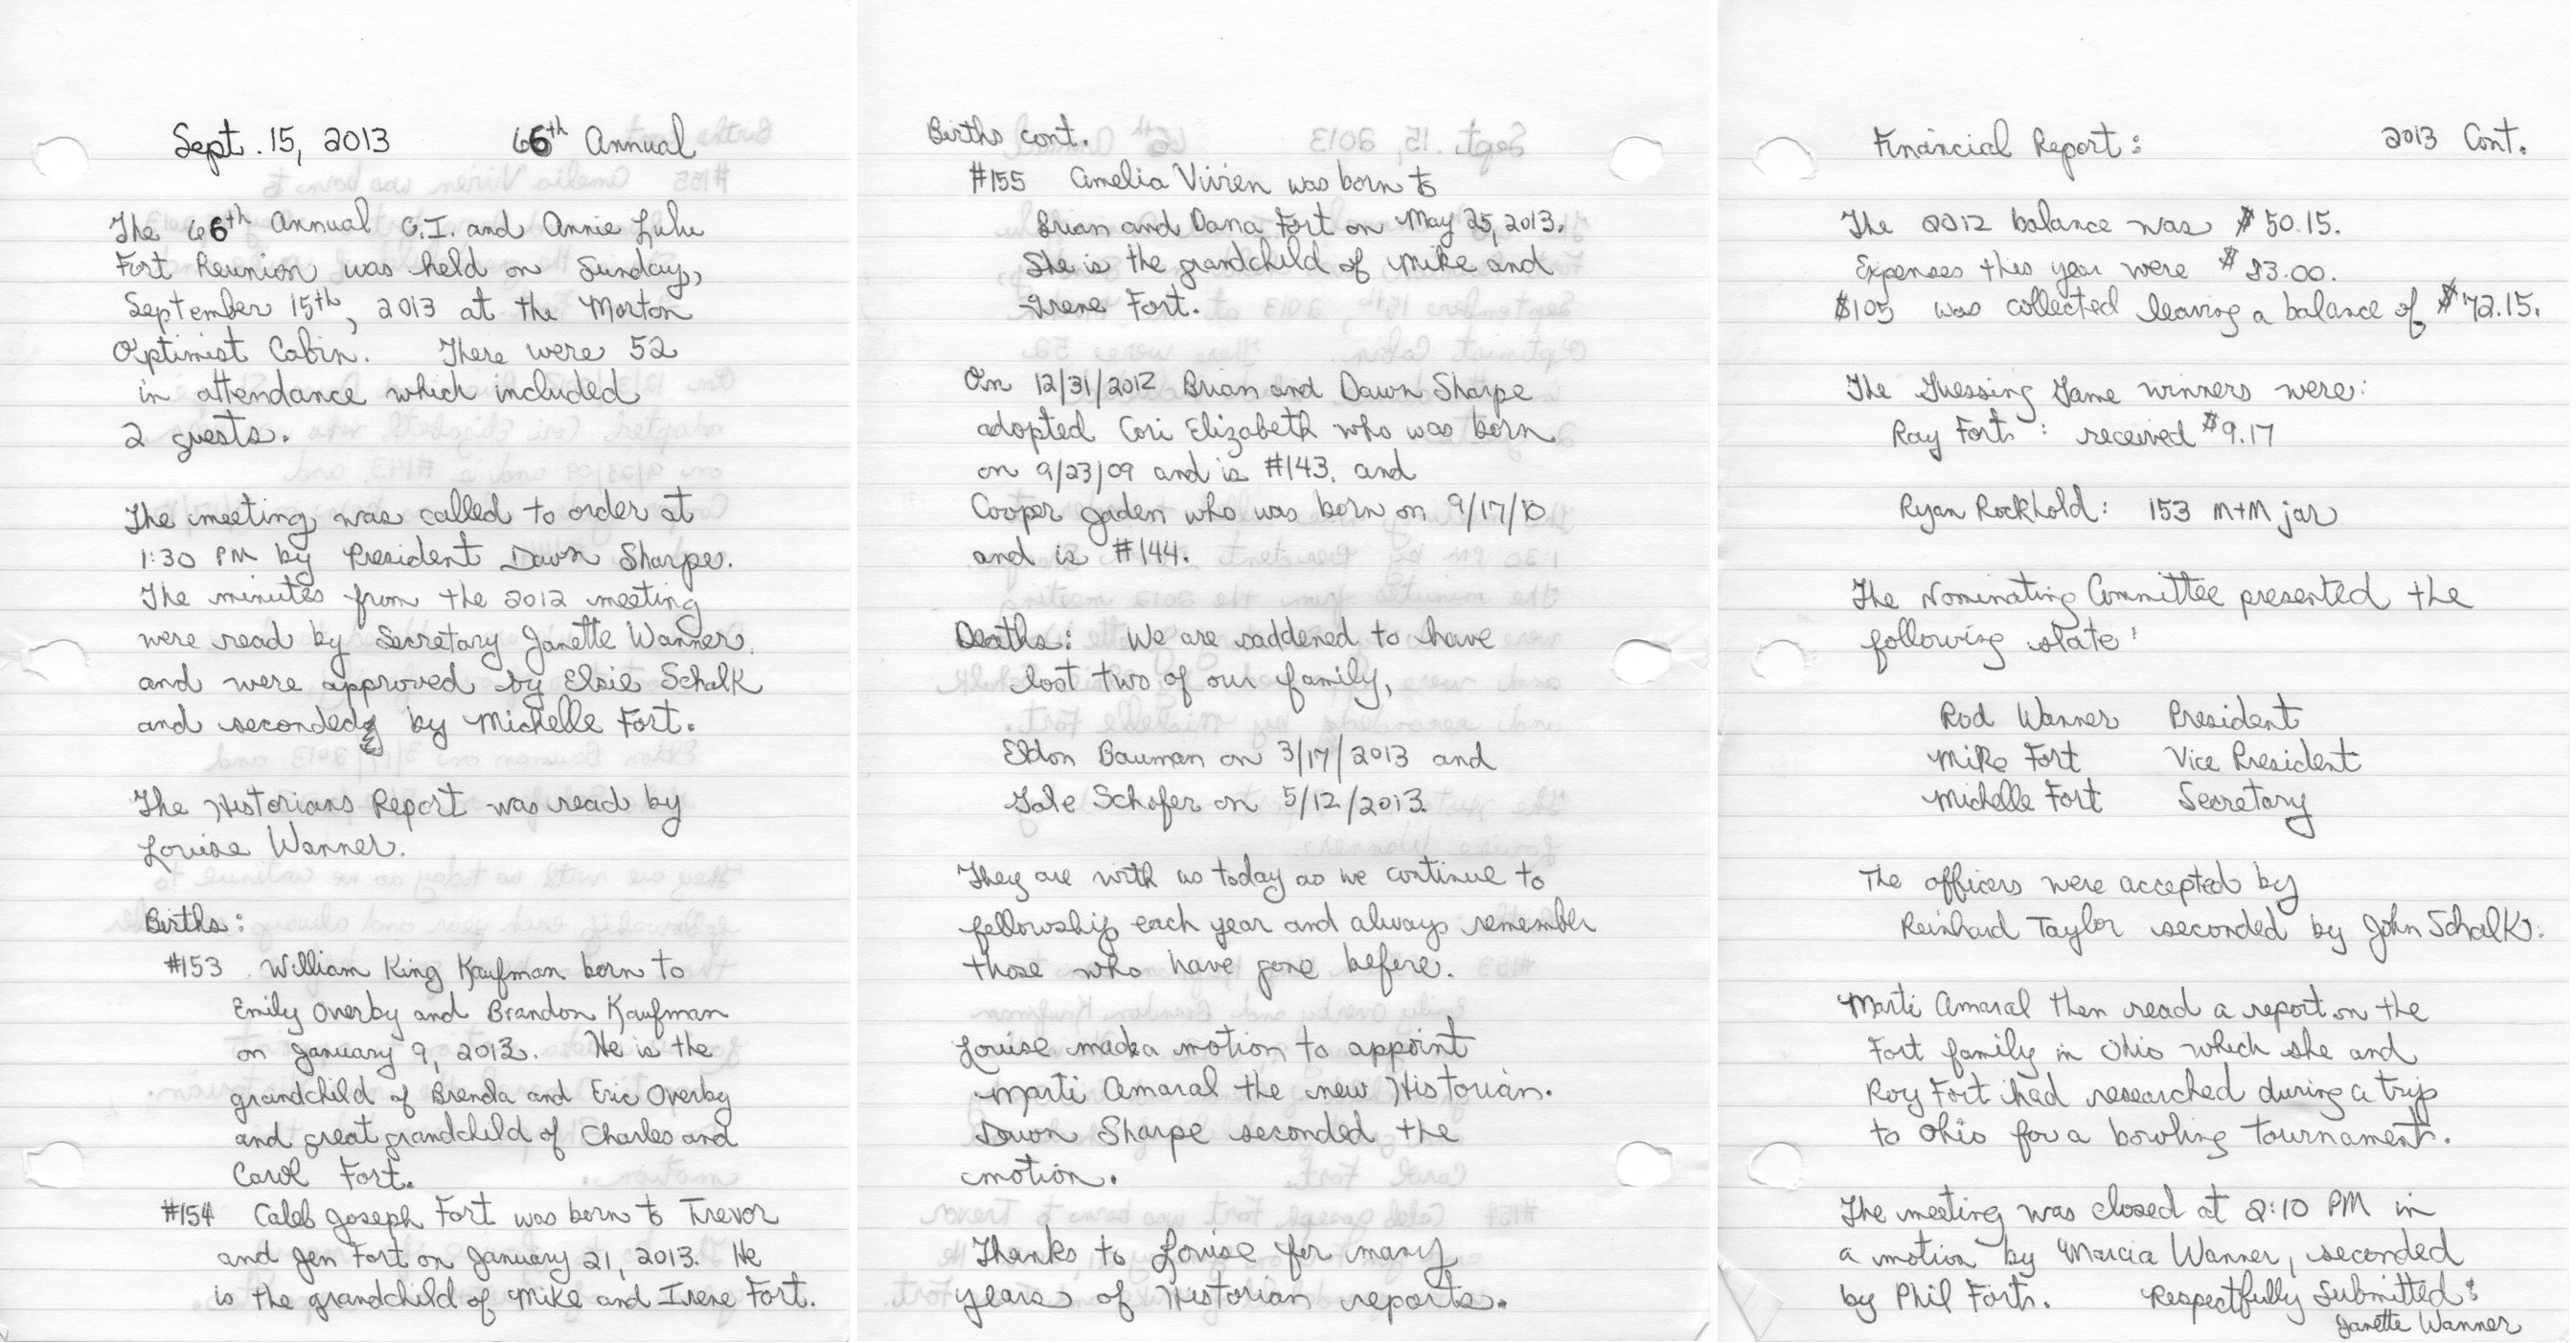 Sept. 15, 2013 66th Annual
The 66th Annual C.I. and Annie Lulu
Fort Reunion was held on Sunday,
September 15th, 2013 at the Morton
Optimist Cabin. There were 52
in attendance which included
2 guests.
The meeting was called to order at
1:30 PM by President Dawn Sharpe.
The minutes from the 2012 meeting
were read by Secretary Janette Wanner
and were approved by Elsie Schalk
and seconded by Michelle Fort.
The Historians Report was read by
Louise Wanner.
Births:
#153 William King Kaufman born to
Emily Overby and Brandon Kaufman
on January 9, 2013. He is the
grandchild of Brenda and Eric Overby
and great grandchild of Charles and
Carol Fort.
#154 Caleb Joseph Fort was born to Trevor
and Jen Fort on January 21, 2013. He
is the grandchild of Mike and Irene Fort.
Births cont.
#155 Amelia Vivien was born to
Brian and Dana Fort on May 25, 2013.
She is the grandchild of Mike and
Irene Fort.
On 12/31/2012 Brian and Dawn Sharpe
adopted Cori Elizabeth who was born
on 9/23/09 and is #143. and
Cooper Jaden who was born on 9/17/10
and is #144.
Deaths: We are saddened to have
lost two of our family,
Eldon Bauman on 3/17/2013 and
Gale Schofer on 5/12/2013.
They are with us today as we continue to
fellowship each year and always remember
those who have gone before.
Louise made a motion to appoint
Marti Amaral the new Historian.
Dawn Sharpe seconded the
motion.
Thanks to Louise for many
years of Historian reports.
Financial Report: 2013 Cont.
The 2012 balance was $50.15.
Expenses this year were $83.00.
$105 was collected leaving a balance of $72.15.
The Guessing Game winners were:
Ray Fort: received $9.17
Ryan Rockhold: 153 M+M jar
The Nominating Committee presented the
following slate:
Rod Wanner President
Mike Fort Vice President
Michelle Fort Secretary
The officers were accepted by
Reinhard Taylor seconded by John Schalk.
Marti Amaral then read a report on the
Fort family in Ohio which she and
Roy Fort had researched during a trip
to Ohio for a bowling tournament.
The meeting was closed at 2:10 PM in
a motion by Marcia Wanner, seconded
by Phil Fort. Respectfully Submitted:
Janette Wanner